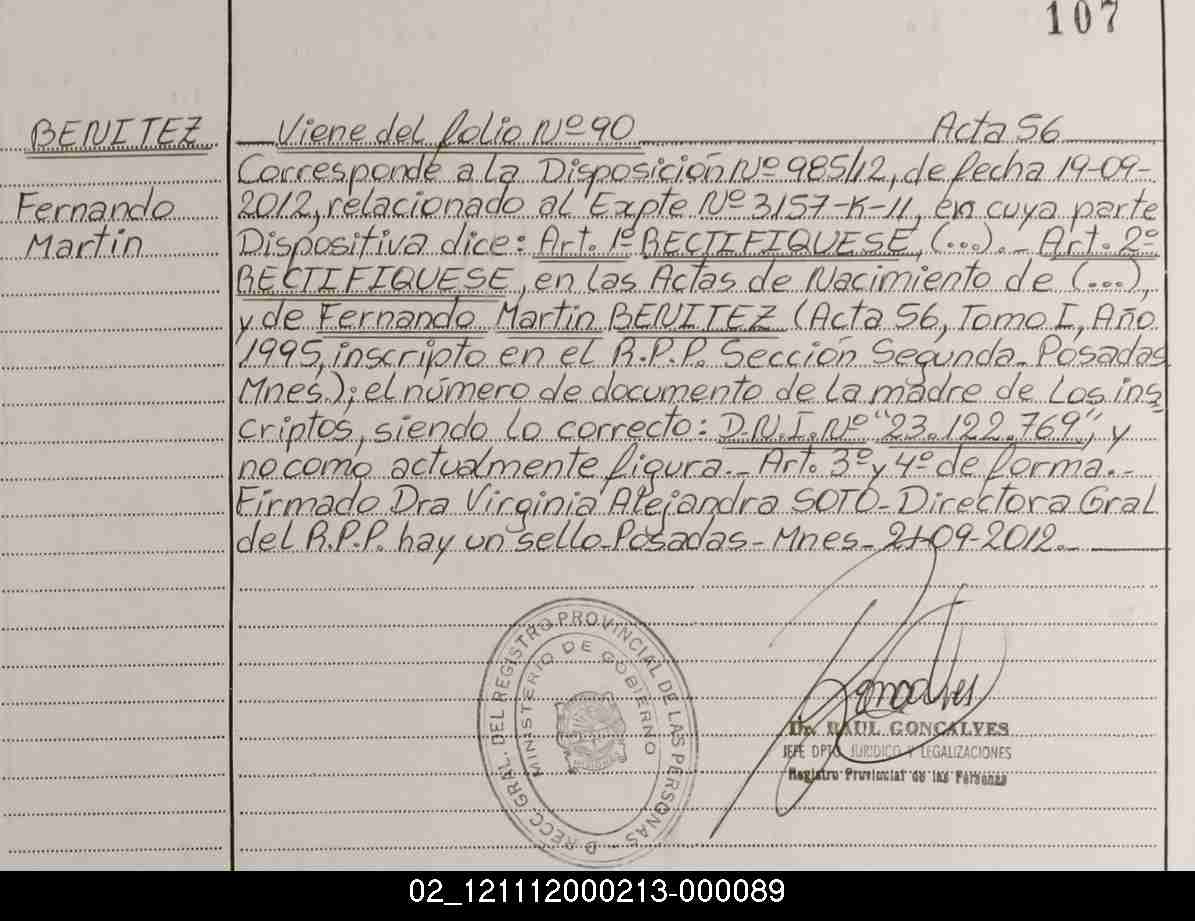 107
BENITEZ
Fernando
Martin
Viene del folio Nº 90 Acta 56
Corresponde a la Disposición Nº 985/12, de fecha 19-09-
2012, relacionado al Expte Nº 3157-K-11, en cuya parte
Dispositiva dice: Art. 1º RECTIFIQUESE, (...).- Art. 2º
RECTIFIQUESE, en las Actas de Nacimiento de (...),
y de Fernando Martin BENITEZ (Acta 56, Tomo I, Año
1995, inscripto en el R.P.P. Sección Segunda- Posadas
Mnes.); el número de documento de la madre de los ins
criptos, siendo lo correcto: D.N.I. Nº "23.122.769", y
no como actualmente figura.- Art. 3º y 4º de forma.-
Firmado Dra Virginia Alejandra SOTO- Directora Gral
del R.P.P. hay un sello- Posadas- Mnes- 21-09-2012.-
DIRECC. GRAL. DEL REGISTRO PROVINCIAL DE LAS PERSONAS -
MINISTERIO DE GOBIERNO
MISIONES
Dr. RAUL GONCALVES
JEFE DPTO. JURIDICO Y LEGALIZACIONES
Registro Provincial de las Personas
02_121112000213-000089